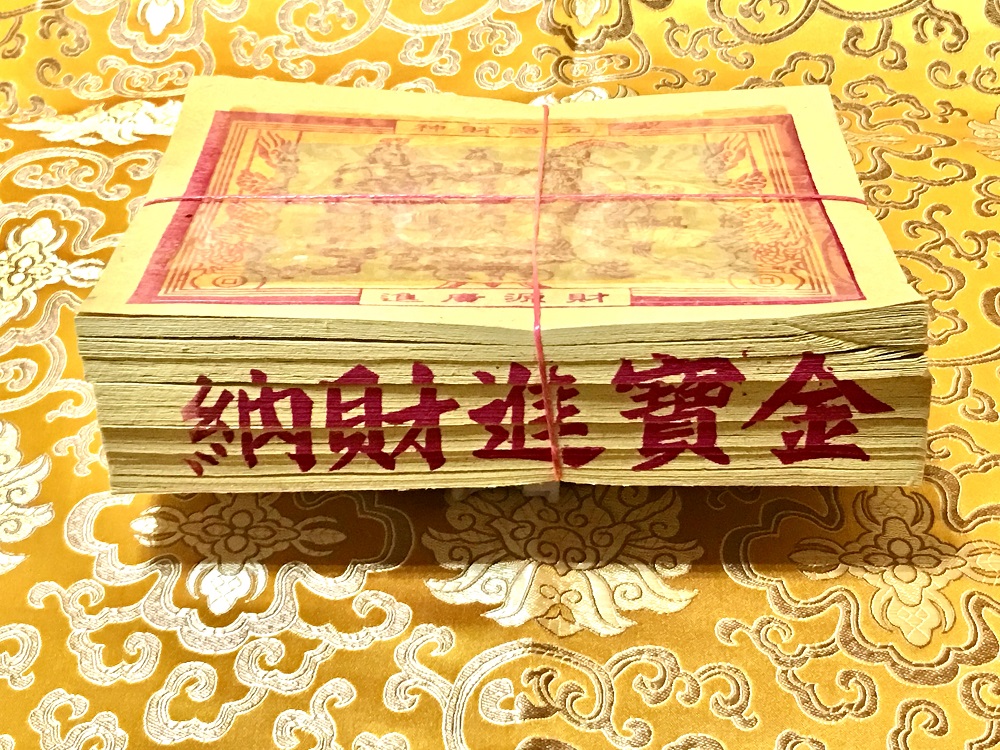 五路財神
財源廣進
納財進寶金